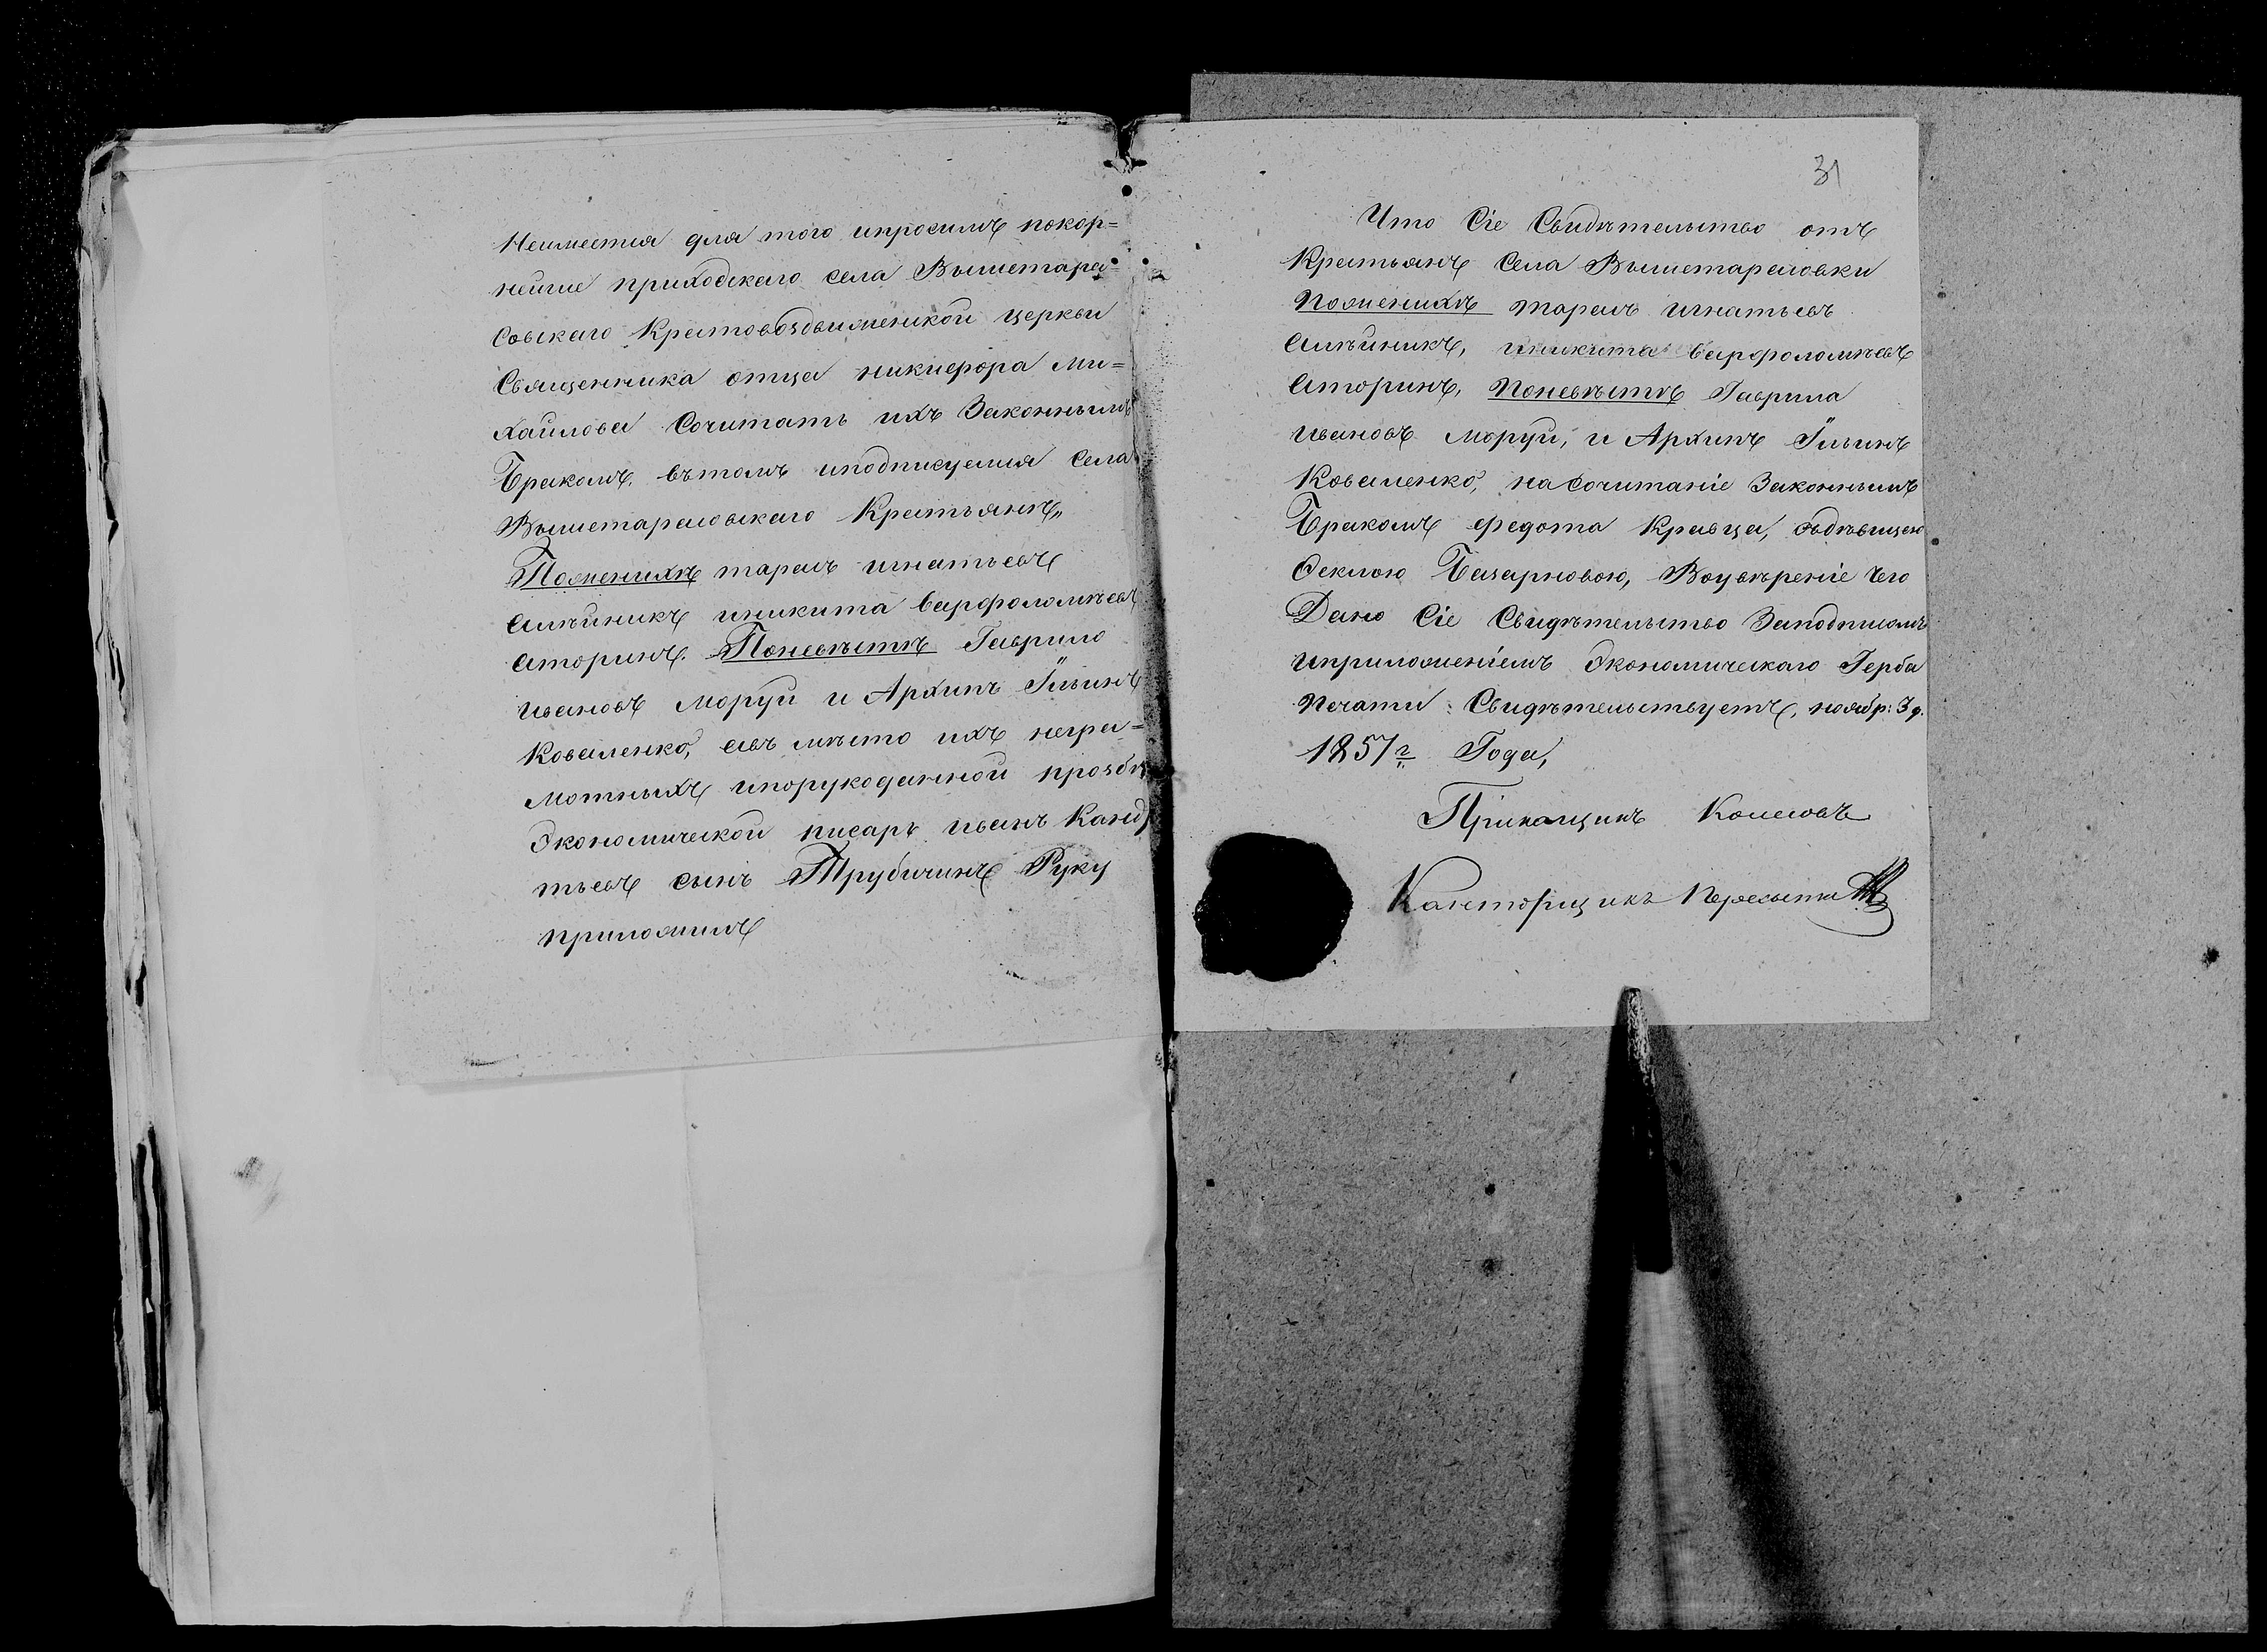 Неимеетця для того ипросимъ покор=
нейше приходскаго села Вышетара=
совскаго Крестовоздвиженской церкви
Священника отца никифора Ми=
хайлова Сочитать ихъ Законнымъ
Бракомъ. вътомъ иподписуемся села
Вышетарасовскаго Крестьянъ„
Поженихѣ тарасъ игнатьевъ
алѣйникъ иникита варфоломѣевъ
аторинъ. Поневѣстѣ Гаврило
ивановъ моруй и Архипъ Ильинъ
Коваленко, авъ мѣсто ихъ негра=
мотныхъ ипорукоданной прозбѣ
Экономической писарь иванъ Канд
тьевъ сынъ Трубичинъ Руку
приложилъ
31
Что Сіе Свидѣтельство отъ
Крестьянъ Села Вышетарасовки
Поженихѣ тарасъ игнатьевъ
алѣйникъ, иникита варфоломѣевъ
аторинъ, Поневѣстѣ Гаврила
ивановъ моруй, и Архипъ Ильинъ
Коваленко, насочитаніе Законнымъ
Бракомъ федота Кравца, здѣвицею
Феклою Базарновою, Воувѣреніе чего
Дано Сіе Свидѣтельство Заподписомъ
иприложеніемъ Экономическаго Герба
Печати: Свидѣтельствуетъ, ноябр: 3 д.
1857 г Года,
Прикащикъ Колесовъ
Канторщикъ